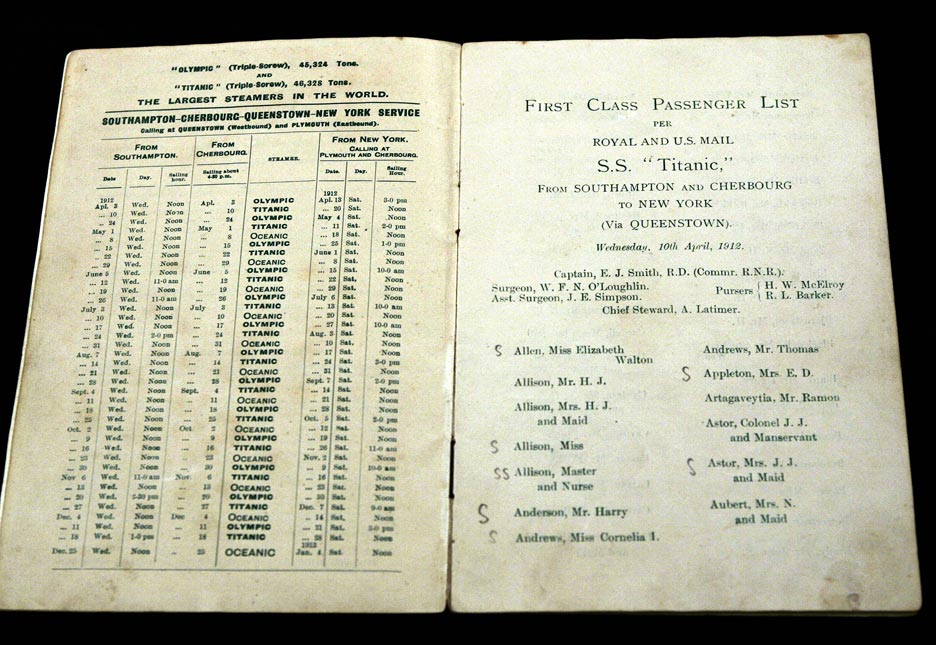 "OLYMPIC" (Triple-Screw), 45,324 Tons.
AND
"TITANIC" (Triple-Screw), 46,328 Tons.
THE LARGEST STEAMERS IN THE WORLD.
SOUTHAMPTON-CHERBOURG-QUEENSTOWN-NEW YORK SERVICE
Calling at QUEENSTOWN (Westbound) and PLYMOUTH (Eastbound).
FROM SOUTHAMPTON. FROM CHERBOURG. STEAMER. FROM NEW YORK. CALLING AT PLYMOUTH AND CHERBOURG.
Date Day. Sailing hour. Sailing about 4-30 p.m. Date. Day. Sailing Hour.
1912 1912
Apl. 3 Wed. Noon Apl. 3 OLYMPIC Apl. 13 Sat. 3-0 pm
... 10 Wed. Noon ... 10 TITANIC ... 20 Sat. Noon
... 24 Wed. Noon ... 24 OLYMPIC May 4 Sat. Noon
May 1 Wed. Noon May 1 TITANIC ... 11 Sat. 2-0 pm
... 8 Wed. Noon ... 8 OCEANIC ... 18 Sat. Noon
... 15 Wed. Noon ... 15 OLYMPIC ... 25 Sat. 1-0 pm
... 22 Wed. Noon ... 22 TITANIC June 1 Sat. Noon
... 29 Wed. Noon ... 29 OCEANIC ... 8 Sat. Noon
June 5 Wed. Noon June 5 OLYMPIC ... 15 Sat. 10-0 am
... 12 Wed. 11-0 am ... 12 TITANIC ... 22 Sat. Noon
... 19 Wed. Noon ... 19 OCEANIC ... 29 Sat. Noon
... 26 Wed. 11-0 am ... 26 OLYMPIC July 6 Sat. Noon
July 3 Wed. Noon July 3 TITANIC ... 13 Sat. 10-0 am
... 10 Wed. Noon ... 10 OCEANIC ... 20 Sat. Noon
... 17 Wed. Noon ... 17 OLYMPIC ... 27 Sat. 10-0 am
... 24 Wed. 2-0 pm ... 24 TITANIC Aug. 3 Sat. Noon
... 31 Wed. Noon ... 31 OCEANIC ... 10 Sat. Noon
Aug. 7 Wed. Noon Aug. 7 OLYMPIC ... 17 Sat. Noon
... 14 Wed. Noon ... 14 TITANIC ... 24 Sat. 3-0 pm
... 21 Wed. Noon ... 21 OCEANIC ... 31 Sat. Noon
... 28 Wed. Noon ... 28 OLYMPIC Sept. 7 Sat. 2-0 pm
Sept. 4 Wed. Noon Sept. 4 TITANIC ... 14 Sat. Noon
... 11 Wed. Noon ... 11 OCEANIC ... 21 Sat. Noon
... 18 Wed. Noon ... 18 OLYMPIC ... 28 Sat. Noon
... 25 Wed. Noon ... 25 TITANIC Oct. 5 Sat. 2-0 pm
Oct. 2 Wed. Noon Oct. 2 OCEANIC ... 12 Sat. Noon
... 9 Wed. Noon ... 9 OLYMPIC ... 19 Sat. Noon
... 16 Wed. Noon ... 16 TITANIC ... 26 Sat. 11-0 am
... 23 Wed. Noon ... 23 OCEANIC Nov. 2 Sat. Noon
... 30 Wed. Noon ... 30 OLYMPIC ... 9 Sat. 10-0 am
Nov 6 Wed. 11-0 am Nov. 6 TITANIC ... 16 Sat. Noon
... 13 Wed. Noon ... 13 OCEANIC ... 23 Sat. Noon
... 20 Wed. 2-30 pm ... 20 OLYMPIC ... 30 Sat. Noon
... 27 Wed. Noon ... 27 TITANIC Dec. 7 Sat. 9-0 am
Dec. 4 Wed. Noon Dec 4 OCEANIC ... 14 Sat. Noon
... 11 Wed. Noon ... 11 OLYMPIC ... 21 Sat. 3-0 pm
... 18 Wed. 1-0 pm ... 18 TITANIC ... 28 Sat. Noon
1913
Dec. 25 Wed. Noon .. 25 OCEANIC Jan. 4 Sat. Noon
FIRST CLASS PASSENGER LIST
PER
ROYAL AND U.S. MAIL
S.S. "Titanic,"
FROM SOUTHAMPTON AND CHERBOURG
TO NEW YORK
(Via QUEENSTOWN).
Wednesday, 10th April, 1912.
Captain, E. J. Smith, R.D. (Commr. R.N.R.).
Surgeon, W. F. N. O'Loughlin.
Asst. Surgeon, J. E. Simpson.
Pursers { H. W. McElroy
R. L. Barker.
Chief Steward, A. Latimer.
S Allen, Miss Elizabeth
Walton
Allison, Mr. H. J.
Allison, Mrs. H. J.
and Maid
S Allison, Miss
SS Allison, Master
and Nurse
S Anderson, Mr. Harry
S Andrews, Miss Cornelia I.
Andrews, Mr. Thomas
S Appleton, Mrs. E. D.
Artagaveytia, Mr. Ramon
Astor, Colonel J. J.
and Manservant
S Astor, Mrs. J. J.
and Maid
Aubert, Mrs. N.
and Maid